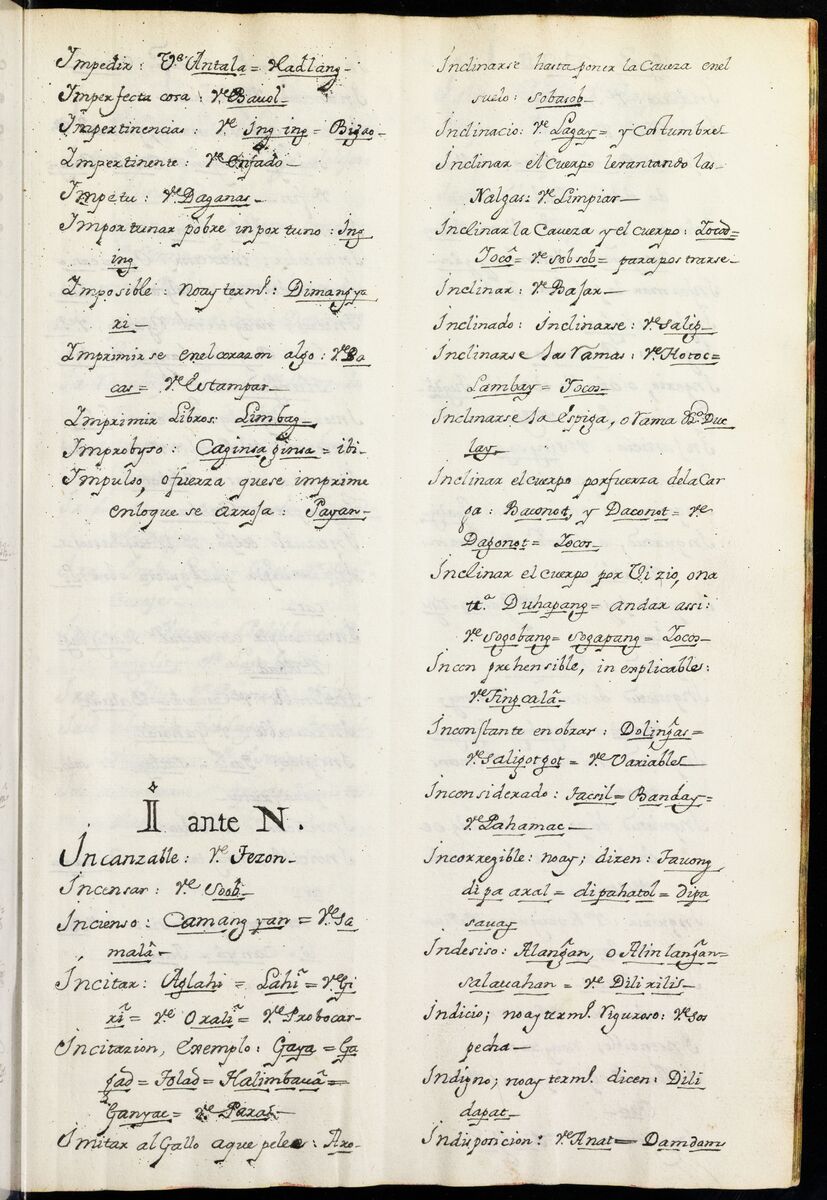 Impedir: Vᵉ Antala = Hadlang_
Imperfecta cosa: Vᵉ Bauol_
Impertinencias: Vᵉ Ing ing = Bigao_
Impertinente: Vᵉ Enfado_
Impetu: Vᵉ Daganas_
Importunar pobre inportuno: Ing
ing
Imposible: no ay termº: Dimangya
ri_
Imprimirse en el corazon algo: Vᵉ Ba
cas = Vᵉ Estampar_
Imprimir Libros: Limbag_
Improbyso: Caginsa ginsa = ibi_
Impulso, o fuerza que se imprime
en lo que se arroja: Payan_
I ante N.
Incanzable: Vᵉ Tezon_
Incensar: Vᵉ Soôb_
Incienso: Camang yan = Vᵉ Sa
malâ_
Incitar: Aglahi = Lahiⁿ = Vᵉ Gi
riⁿ = Vᵉ Oraliⁿ = Vᵉ Probocar_
Incitazion, Exemplo: Gaya = Ga
gad = Folad = Halimbauâ =
Ganyac = Vᵉ Para_
Imitar al Gallo a que pelee: Aro_
Inclinarse hasta poner la Caveza en el
suelo: Sobasob_
Inclinacio: Vᵉ Lagay = y Costumbre_
Inclinar el cuerpo levantando las_
Nalgas: Vᵉ Limpiar_
Inclinar la Caveza y el cuerpo: Tocod =
Tocô = Vᵉ Sobsob = para postrarse_
Inclinar: Vᵉ Bajar_
Inclinado: Inclinarse: Vᵉ Salig_
Inclinarse las ramas: Vᵉ Hotoc =
Lambay = Tocos_
Inclinarse la espiga, o rama Vᵉ Duc
lay_
Inclinar el cuerpo por fuerza de la Car
ga: Baconot, y Daconot = Vᵉ
Dagonot = Tocos_
Inclinar el cuerpo por Vizio, o na
tᵃ. Duhapang = andar assi:
Vᵉ Sogobang = Sogapang = Tocos_
Incon prehensible, in explicable:
Vᵉ Tingcalâ_
Inconstante en obrar: Dolingas =
Vᵉ Saligotgot = Vᵉ Variable_
Inconsiderado: Tacsil = Banday =
Vᵉ Pahamac_
Incorregible: no ay; dizen: Tauong
di pa aral = di pahatol = dipa
saway
Indesiso: Alangan, o Alinlangan =
Salauahan = Vᵉ Dilirilis_
Indicio; no ay termº. riguroso: Vᵉ Sos
pecha_
Indigno; no ay termº. dicen: Dili
dapat_
Indisposicion: Vᵉ Anat = Damdam